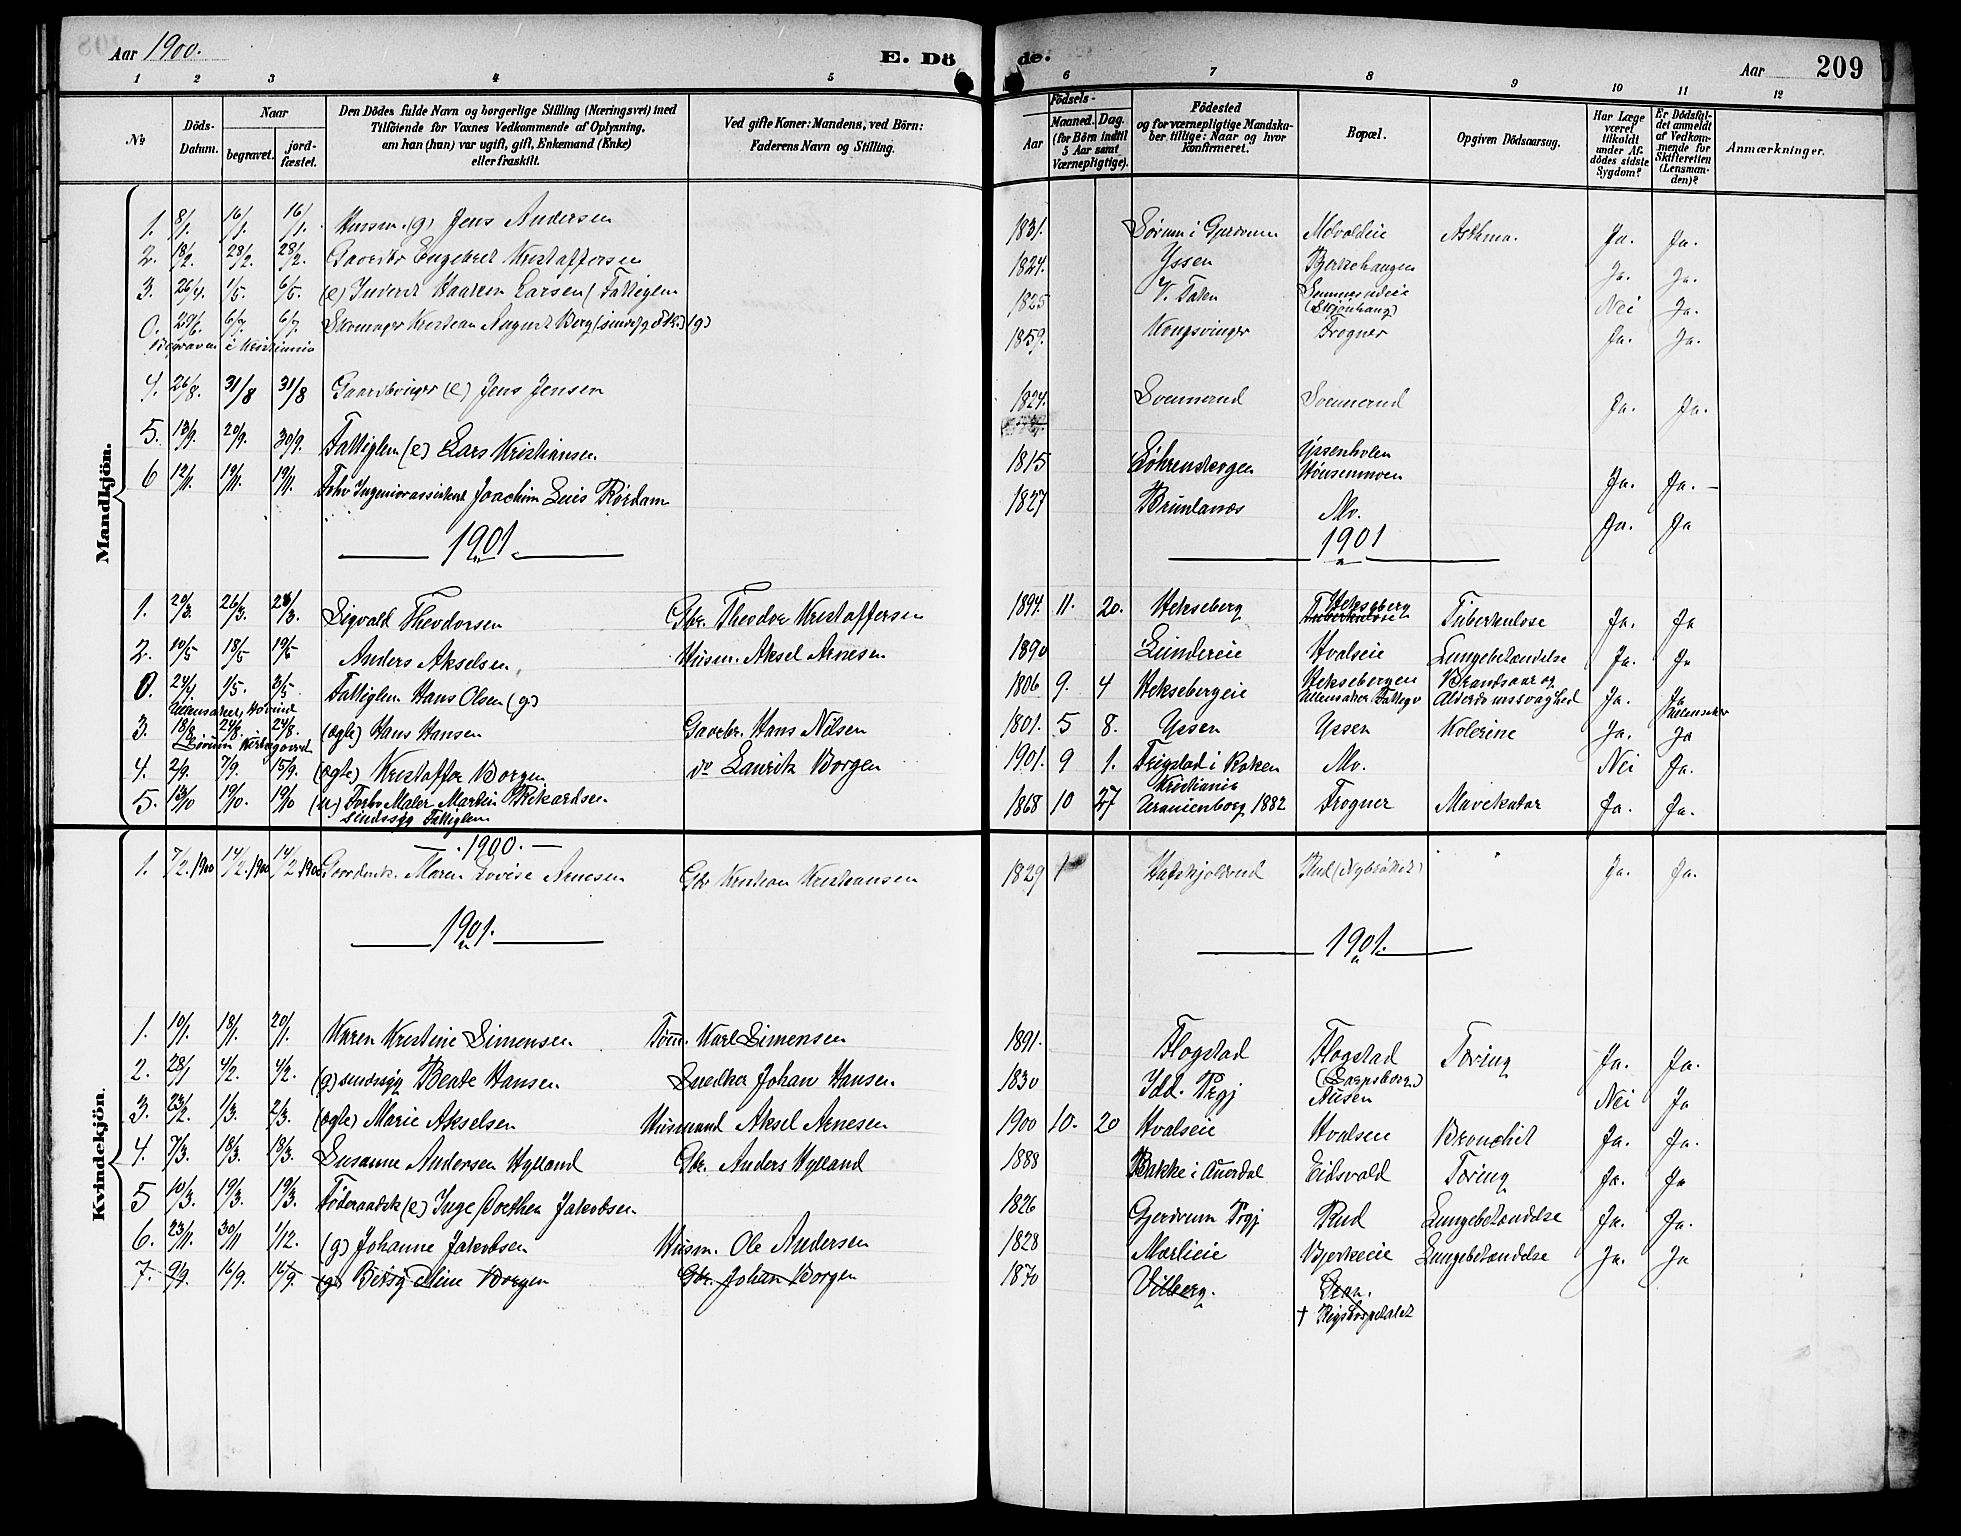 Aar 1900.
E. Dö
de.
Aar 209
1 2 3 4 5 6 7 8 9 10 11 12
No
Döds-Datum.
Naar
begravet.
jord-fæstet.
Den Dödes fulde Navn og borgerlige Stilling (Næringsvei) med
Tilföiende for Voxnes Vedkommende af Oplysning,
om han (hun) var ugift, gift, Enkemand (Enke)
eller fraskilt.
Ved gifte Koner: Mandens, ved Börn:
Faderens Navn og Stilling.
Födsels-
Aar
Maaned. Dag.
(for Börn indtil
5 Aar samt
Værnepligtige).
Födested
og for værnepligtige Mandska-
ber tillige: Naar og hvor
konfirmeret.
Bopæl.
Opgiven Dödsaarsag.
Har Læge
været
tilkaldt
under Af-
dödes sidste
Sygdom?
Er Dödsfal-
det anmeldt
af Vedkom-
mende for
Skifteretten
(Lensman-
den)?
Anmærkninger.
Mandkjön.
1. 8/1. 16/1. 16/1. Husm. (g) Jens Andersen 1831. Sörum i Gjerdrum Asthma. Ja. Ja.
2. 18/2. 23/2. 23/2. Gaardbr Engebret Kristoffersen 1824. Yssen Bjerkehaugen Ja. Ja.
3. 26/4. 1/5. 6/5. (e) Larsen (Fattiglem 1825 Nei Ja.
0. 29/6. 6/7. 6/7. Skomager Kristian August Berg (g) 1859. Kongsvinger Frogner Ja. Ja.
Begraven i Kristiania
4. 26/8. 31/8 31/8 Gaardbruger (e) Jens Jensen 1824. Svennerud Svennerud Ja. Ja.
5. 13/9. 20/9. 30/9. Fattiglem (e) Lars Kristiansen 1815 Yssenholen Ja. Ja.
6 12/11. 19/11. 19/11. Forhv Ingeniorassistent Joachim Rördam 1827 Brunlanæs Mo. Ja. Ja
1901.
1901
1. 20/3. 26/3. Sigvald Theodorsen Gbr. Theodor Kristoffersen 1894. 11. 20. Hekseberg Hekseberg Tuberkulose Ja. Ja
2. 10/5 18/5 19/5 Anders Akselsen Husm. Aksel Arnesen 1890 Lundereie Hvalseie Lungebetændelse Ja. Ja
0. 24/4. 1/5. 3/5. Fattiglem Hans Olsen (g) 1806 9. 4 Heksebergeie Heksebergeie Brandsaar og
Ullensaker Fattigv Alderdomssvaghed Ja. Ja
3. 18/8. 24/8. 24/8. (ægte) Hans Hansen Gaardbr. Hans Nilsen 1801. 5 8. Yssen Yssen Kolerine Ja. Ja
Sörum Kirkegaard
4. 2/9. 7/9. 15/9. (ægte) Kristoffer Borgen do Lauritz Borgen 1901. 9 1. Frigstad i Mo. Nei Ja.
5. 13/10 19/10. 19/10 (u) Forhv Maler Martin Rikardsen 1868 10 27 Kristiania
Uranienborg 1882 Frogner Mavekatar Ja. Ja.
sindssyg Fattiglem
Kvindekjön.
1900.
1. 7/2. 1900 14/2. 1900 14/2. 1900 Maren Lovise Arnesen Gbr Kristian Kristiansen 1829 Hafskjoldrud Rud Ja. Ja.
1901.
1901.
1. 10/1. 18/1. 20/1. Karen Kristine Simensen Töm. Karl Simensen 1891. Flogstad Flogstad Tæring Ja. Ja.
2. 28/1 4/2. 4/2. (g) sindssyg Beate Hansen Snedker Johan Hansen 1830 Idd. Prgj (Sarpsborg)
Ausen Nei Ja
3. 23/2. 1/3. 2/3. (ægte) Marie Akselsen Husmand Aksel Arnesen 1900 10. 20 Hvalseie Hvalseie Bronchit Ja. Ja.
4. 7/3. 18/3. 18/3. Susanne Andersen Hylland Gbr. Anders Hylland 1888 Bakke i Aurdal Eidsvold Tæring Ja. Ja
5 10/3. 19/3. 19/3. Föderaadsk (e) Inge Dorthea Jakobsen 1826 Gjerdrum Prgj Rud Lungebetændelse Ja. Ja.
6. 23/11. 30/11 1/12. (g) Johanne Jakobsen Husm. Ole Andersen 1828 Mærlieie Bjerkeeie Lungebetændelse Ja. Ja
7. 9/9. 16/9. 16/9. (g) Betsy Borgen Gbr. Johan Borgen 1870 Vilberg.
† Rigshospitalet